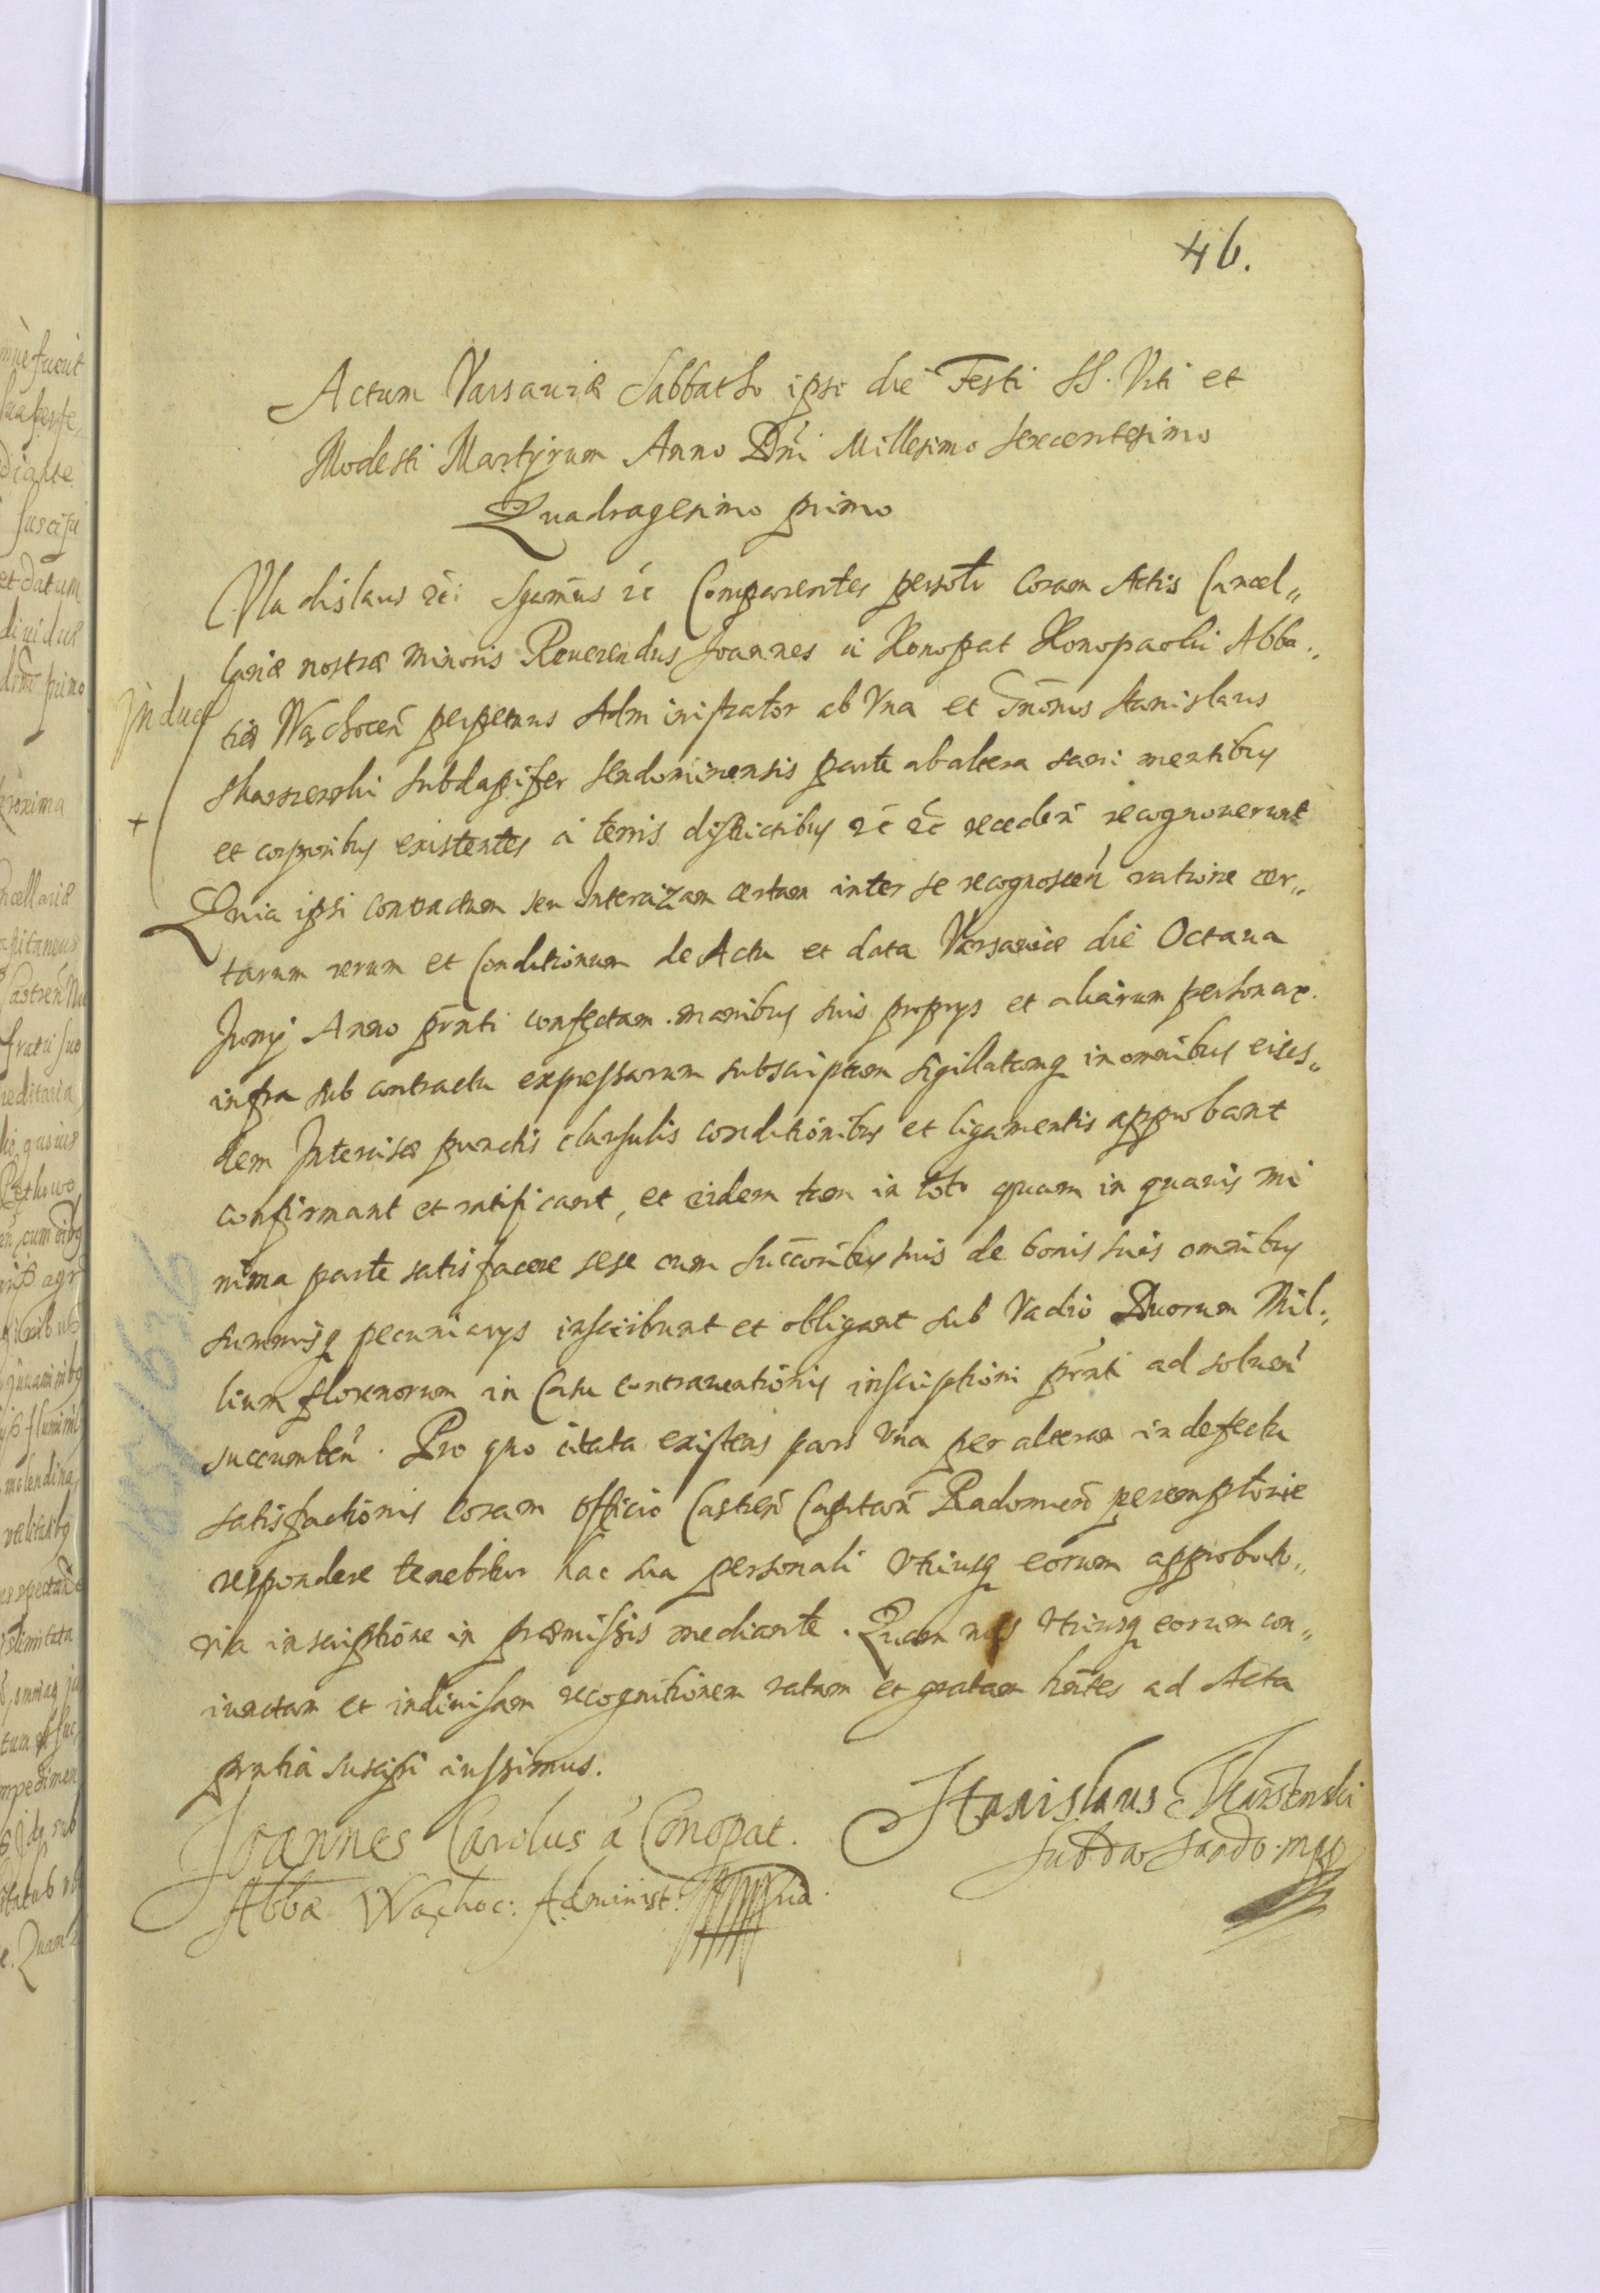 46.
Actum Varsauiæ Sabbatho ipso die Festi SS. Viti et
Modesti Martyrum Anno Dni Millesimo Sexcentesimo
Quadragesimo primo
Vladislaus etc: Sgnus etc Comparentes persolr Coram Actis Cancel„
lariæ nostræ minoris Reuerendus Joannes a Konopat Konopacki Abba„
tiæ Wachocen perpetuus Administrator ab Vna et Gnosus Stanislaus
Subdapifer Sendomirensis parte ab altera sani mentibus
et corporibus existentes a terris districtibus etc etc receden recognouerunt
Quia ipsi contractum seu Intercizam certam inter se recognoscen ratione cer„
tarum rerum et Conditionum de Actu et data Varsauiæ die Octaua
Junij Anno prnti confectam manibus suis proprys et aliarum personar.
infra sub contractu expressarum subscriptam sigillatamq in omnibus eius„
dem Intercisæ punctis clausulis conditionibus et ligamentis approbant
confirmant et ratificant, et eidem tam in toto quam in quauis mi
nima parte satisfacere sese cum succoribus suis de bonis suis omnibus
summisq pecuniarys inscribunt et obligant sub Vadio Duorum Mil„
lium florenorum in Casu contrauentionis inscriptioni prnti ad soluen
succumben. Pro quo citata existens pars Vna per alteram in defectu
satisfactionis coram Officio Castren Capitan Radomien peremptorie
respondere tenebitur hac sua personali Vtriusq eorum approbato„
ria inscriptione in præmissis mediante. Quam nos Vtriusq eorum con„
iunctam et indiuisam recognitionem ratam et gratam hntes ad Acta
prntia suscipi iussimus.
Induct
+
Joannes Carolus á Conopat.
Abbæ Wachoc: Administ:
Stanislaus
Subda Sando. mpp